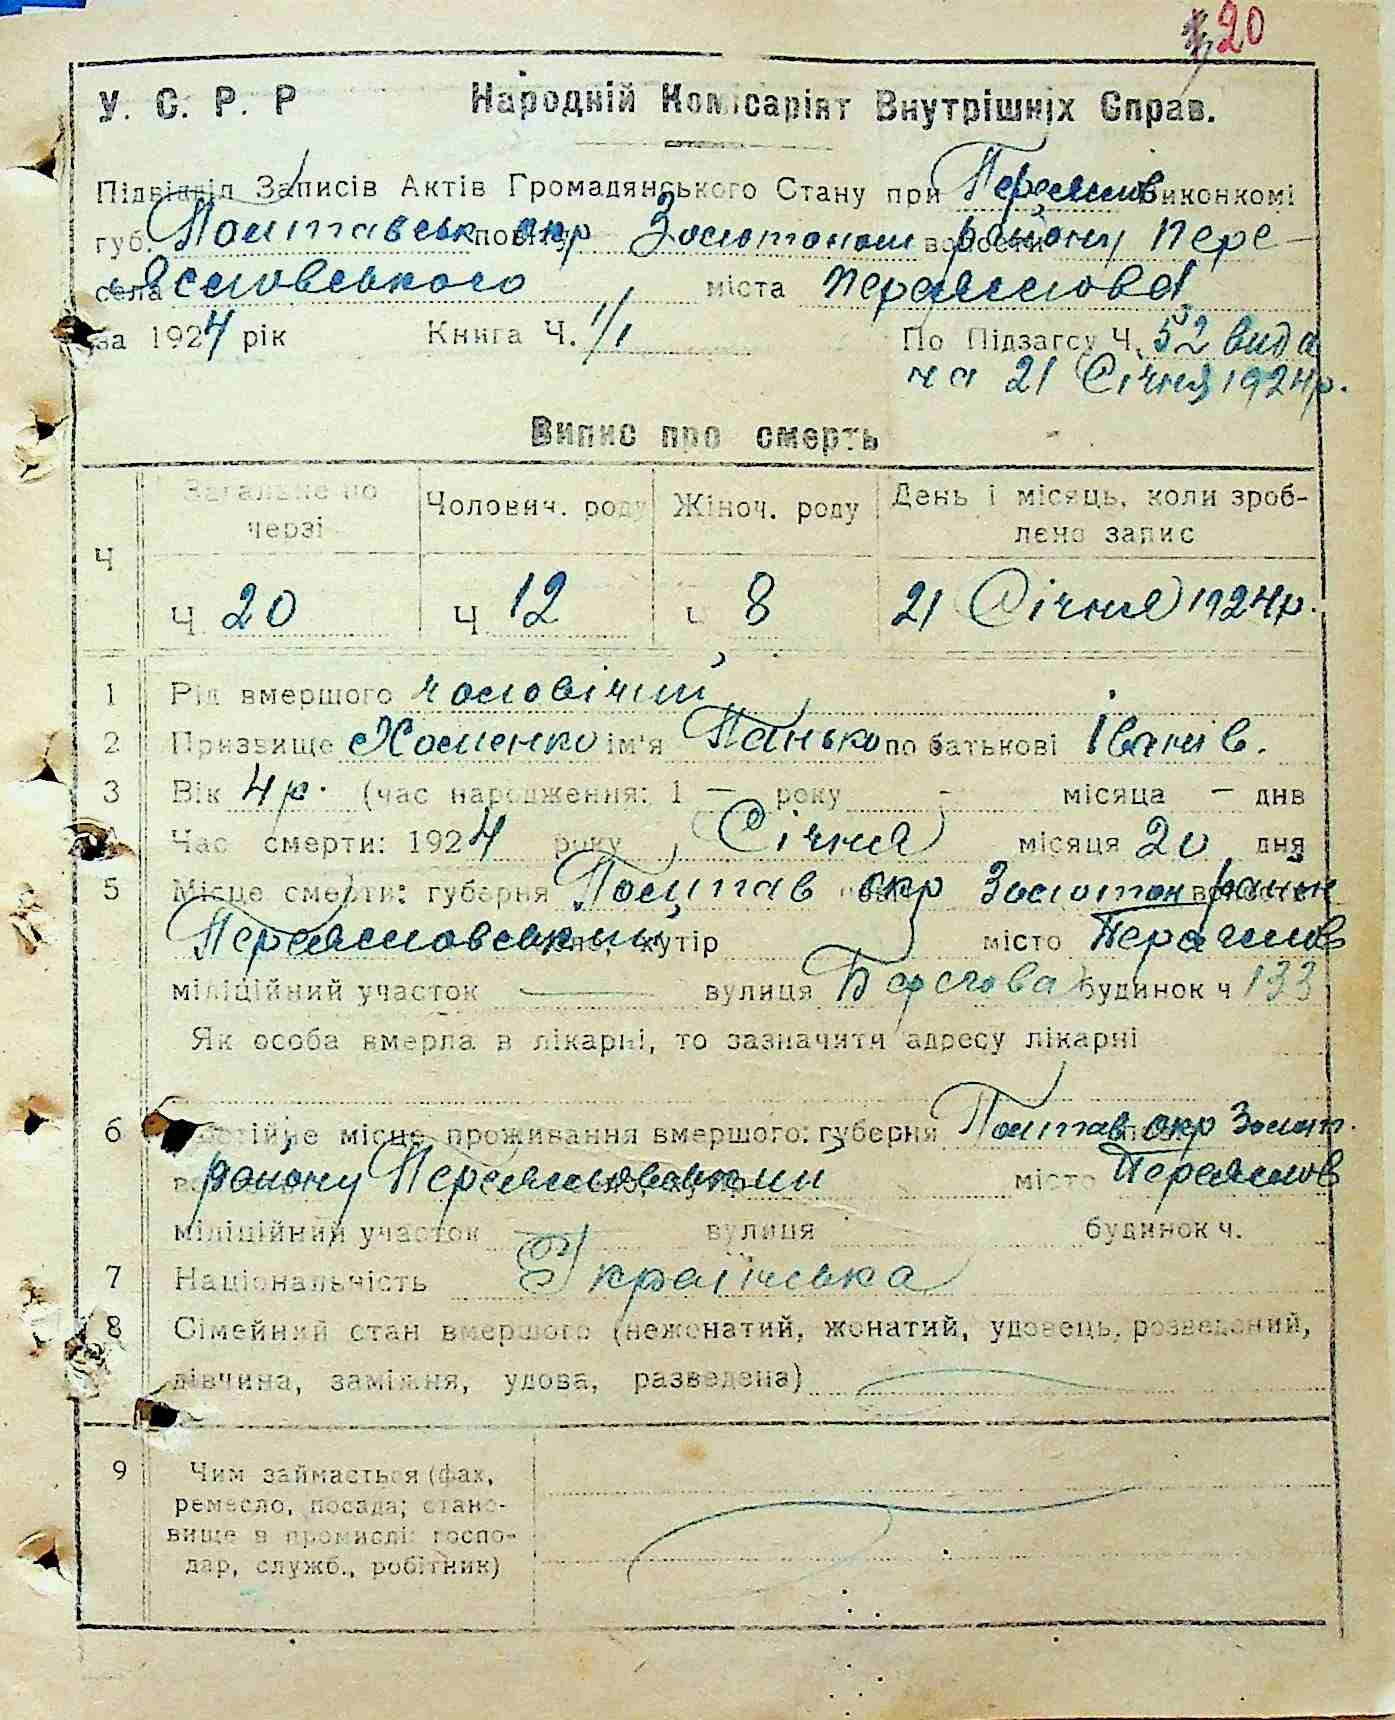 20
У. С. Р. Р Народній Комісаріят Внутрішніх Справ.
Підвідділ Записів Актів Громадянського Стану при Переяслов виконкомі
губ. Полтавськ повіту окр Золотоном волости району Пере-
села яссловського міста Переяслова
за 1924 рік Книга Ч. 1/1 По Підзагсу Ч. 52 вида
на 21 Січня 1924р.
Випис про смерть
Ч Загальне по черзі Чоловіч. роду Жіноч. роду День і місяць, коли зроб-
лено запис
Ч 20 Ч 12 Ч 8 21 Січня 1924р.
1 Рід вмершого чоловічий
2 Призвище Хоменко ім'я Панько по батькові Іванів.
3 Вік 4 р. (час народження: 1 — року - місяца — днв
Час смерти: 1924 року Січня місяця 20 дня
5 Місце смерти: губерня Полтав окр Золотон волость район
Переясловський хутір місто Переяслов
міліційний участок — вулиця Берегова будинок ч 133
Як особа вмерла в лікарні, то зазначити адресу лікарні
6 Постійне місце проживання вмершого: губерня Полтав окр Золот.
району Переясловський місто Переяслов
міліційний участок вулиця будинок ч.
7 Національність Українська
8 Сімейний стан вмершого (нежонатий, жонатий, удовець, розведений,
дівчина, заміжня, удова, разведена)
9 Чим займається (фах,
ремесло, посада; стано-
вище в промислі: госпо-
дар, служб., робітник)